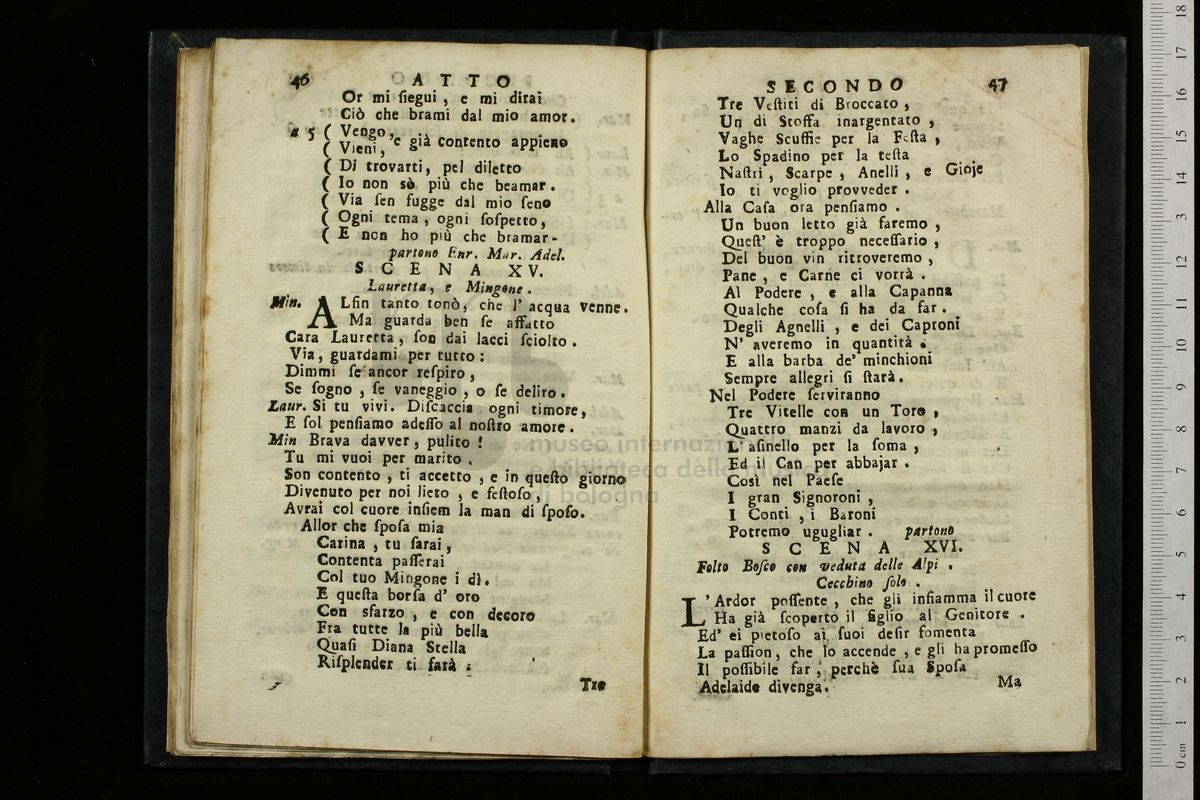 46 ATTO
Or mi ſiegui, e mi dirai
Ciò che brami dal mio amor.
a 5 ( Vengo, e già contento appieno
( Vieni,
( Di trovarti, pel diletto
( Io non sò più che beamar.
( Via ſen fugge dal mio ſeno
( Ogni tema, ogni ſoſpetto,
( E non ho più che bramar-
partono Enr. Mar. Adel.
SCENA XV.
Lauretta, e Mingone.
Min. ALfin tanto tonò, che l' acqua venne.
Ma guarda ben ſe affatto
Cara Lauretta, ſon dai lacci ſciolto.
Via, guardami per tutto:
Dimmi ſe ancor reſpiro,
Se ſogno, ſe vaneggio, o ſe deliro.
Laur. Si tu vivi. Diſcaccia ogni timore,
E ſol penſiamo adeſſo al noſtro amore.
Min Brava davver, pulito!
Tu mi vuoi per marito,
Son contento, ti accetto, e in queſto giorno
Divenuto per noi lieto, e feſtoſo,
Avrai col cuore inſiem la man di ſpoſo.
Allor che ſpoſa mia
Carina, tu ſarai,
Contenta paſſerai
Col tuo Mingone i dì.
E queſta borſa d' oro
Con sfarzo, e con decoro
Fra tutte la più bella
Quaſi Diana Stella
Riſplender ti farà:
Tre
SECONDO 47
Tre Veſtiti di Broccato,
Un di Stoffa inargentato,
Vaghe Scuffie per la Feſta,
Lo Spadino per la teſta
Naſtri, Scarpe, Anelli, e Gioje
Io ti voglio provveder.
Alla Caſa ora penſiamo.
Un buon letto già faremo,
Queſt' è troppo neceſſario,
Del buon vin ritroveremo,
Pane, e Carne ci vorrà.
Al Podere, e alla Capanna
Qualche coſa ſi ha da far.
Degli Agnelli, e dei Caproni
N' averemo in quantità.
E alla barba de' minchioni
Sempre allegri ſi ſtarà.
Nel Podere ſerviranno
Tre Vitelle con un Toro,
Quattro manzi da lavoro,
L' aſinello per la ſoma,
Ed il Can per abbajar.
Così nel Paeſe
I gran Signoroni,
I Conti, i Baroni
Potremo ugugliar. partono
SCENA XVI.
Folto Boſco con veduta delle Alpi.
Cecchino ſolo.
L'Ardor poſſente, che gli infiamma il cuore
Ha già ſcoperto il figlio al Genitore.
Ed' ei pietoſo ai ſuoi deſir fomenta
La paſſion, che lo accende, e gli ha promeſſo
Il poſſibile far, perchè ſua Spoſa
Adelaide divenga.
Ma
museo internazionale
e biblioteca della musica
di bologna
0 cm 1 2 3 4 5 6 7 8 9 10 11 12 13 14 15 16 17 18